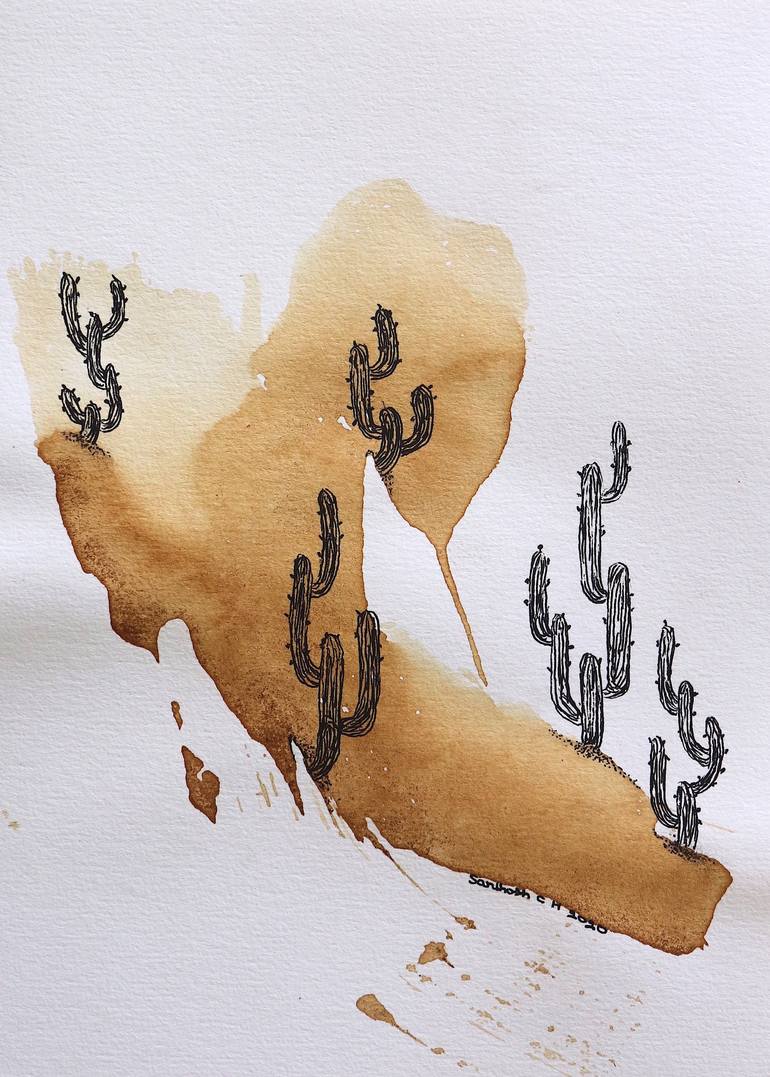 Santhosh C H 2020